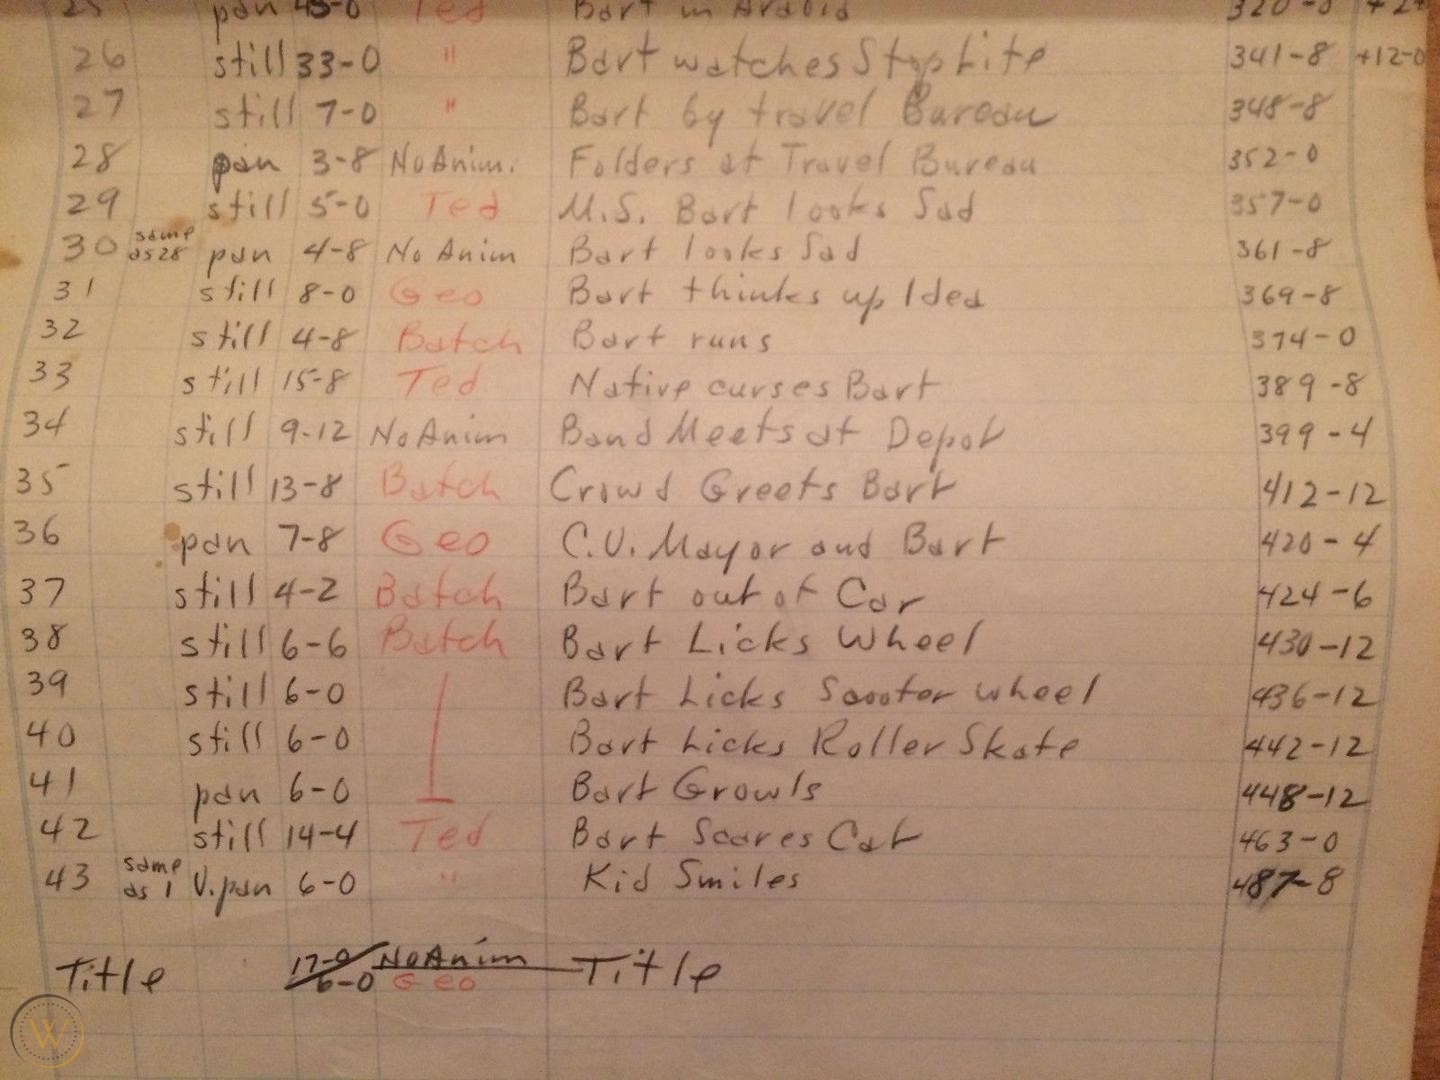 25 pan 45-0 Ted Bart in Arabia 320-0 +24
26 still 33-0 " Bart watches Stop Lite 341-8 +12-0
27 still 7-0 " Bart by travel Bureau 348-8
28 pan 3-8 No Anim. Folders at Travel Bureau 352-0
29 still 5-0 Ted M.S. Bart looks Sad 357-0
30 same as 28 pan 4-8 No Anim Bart looks Sad 361-8
31 still 8-0 Geo Bart thinks up Idea 369-8
32 still 4-8 Batch Bart runs 374-0
33 still 15-8 Ted Native curses Bart 389-8
34 still 9-12 No Anim Band Meets at Depot 399-4
35 still 13-8 Batch Crowd Greets Bart 412-12
36 pan 7-8 Geo C.U. Mayor and Bart 420-4
37 still 4-2 Batch Bart out of Car 424-6
38 still 6-6 Batch Bart Licks Wheel 430-12
39 still 6-0 Bart Licks Scooter wheel 436-12
40 still 6-0 Bart Licks Roller Skate 442-12
41 pan 6-0 Bart Growls 448-12
42 still 14-4 Ted Bart Scares Cat 463-0
43 same as 1 V.pan 6-0 " Kid Smiles 487-8
Title 17-0 No Anim Title
6-0 Geo
W